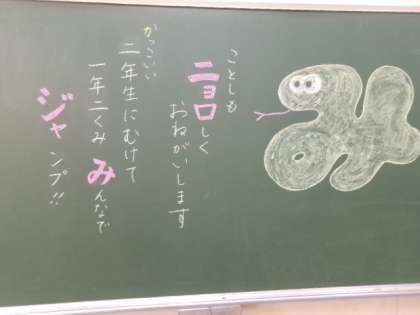 ことしも
ニョロしく
おねがいします
かっこいい
二年生にむけて
一年二くみ みんなで
ジャンプ!!